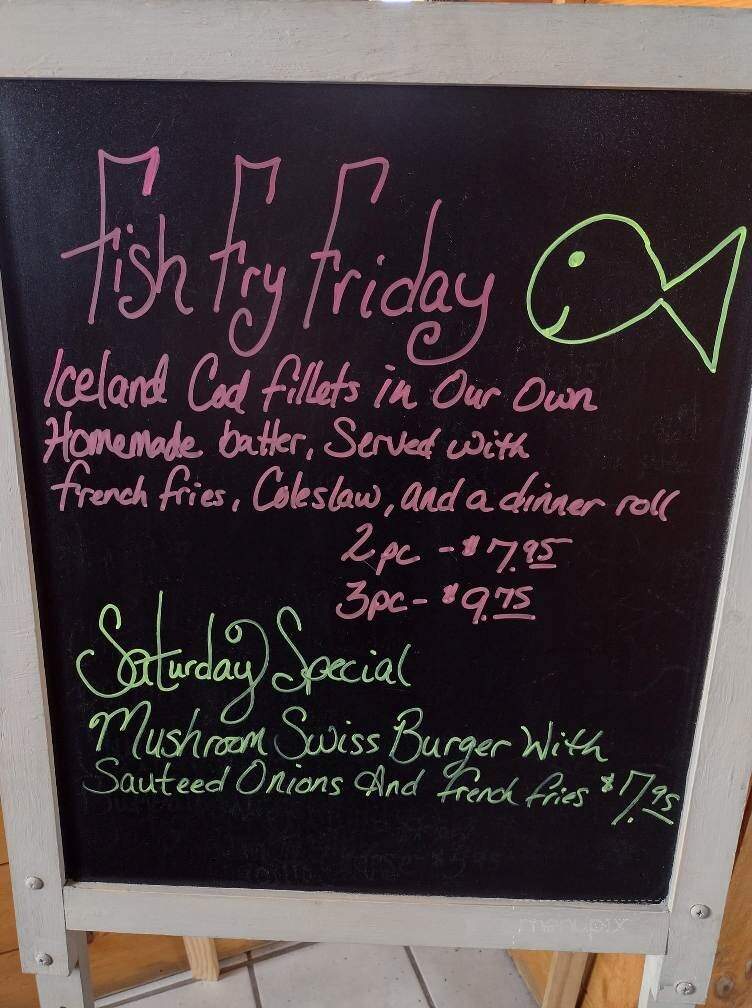 Fish Fry Friday
Iceland Cod fillets in Our Own
Homemade batter, Served with
french fries, Coleslaw, and a dinner roll
2pc - $7.95
3pc - $9.75
Saturday Special
Mushroom Swiss Burger With
Sauteed Onions And french fries $7.95